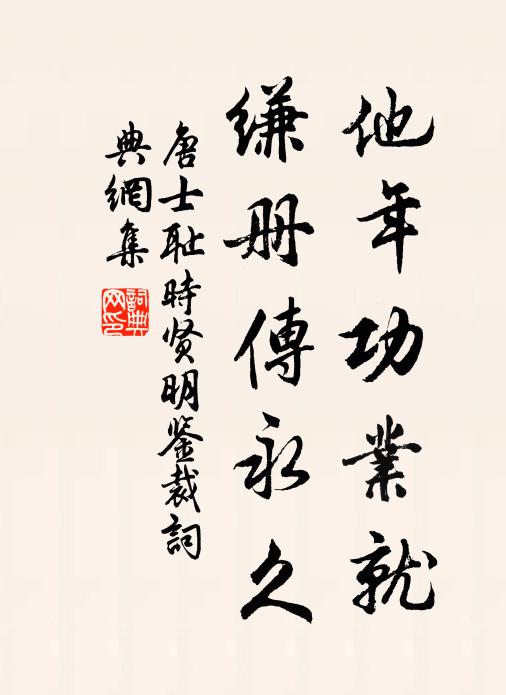 他年功業就
縑册傳永久
唐士耻時贤明鉴裁詞
典網集
詞典網印